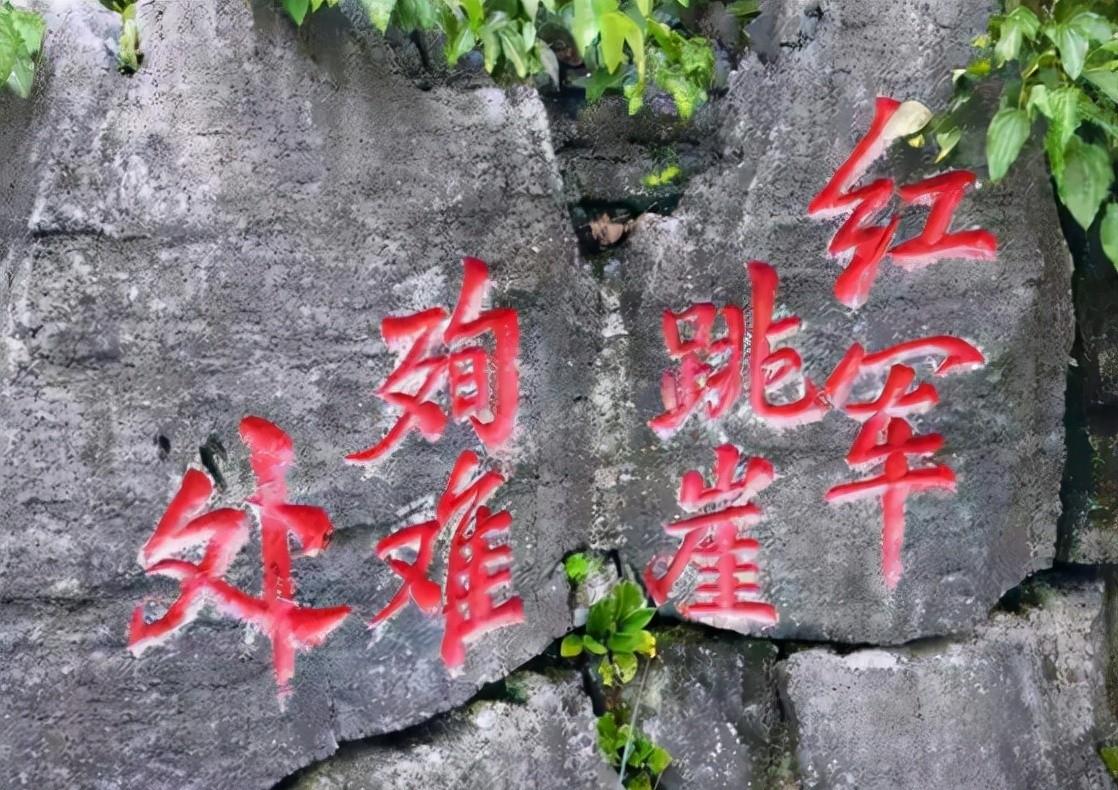 红军
跳崖
殉难
处